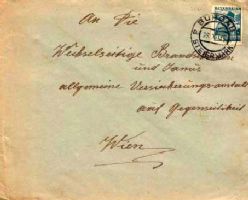 An Die
Wechselseitige Brand
und Janus
allgemeine Versicherungs-anstalt
auf Gegenseitigkeit
Wien
STEIERMARK